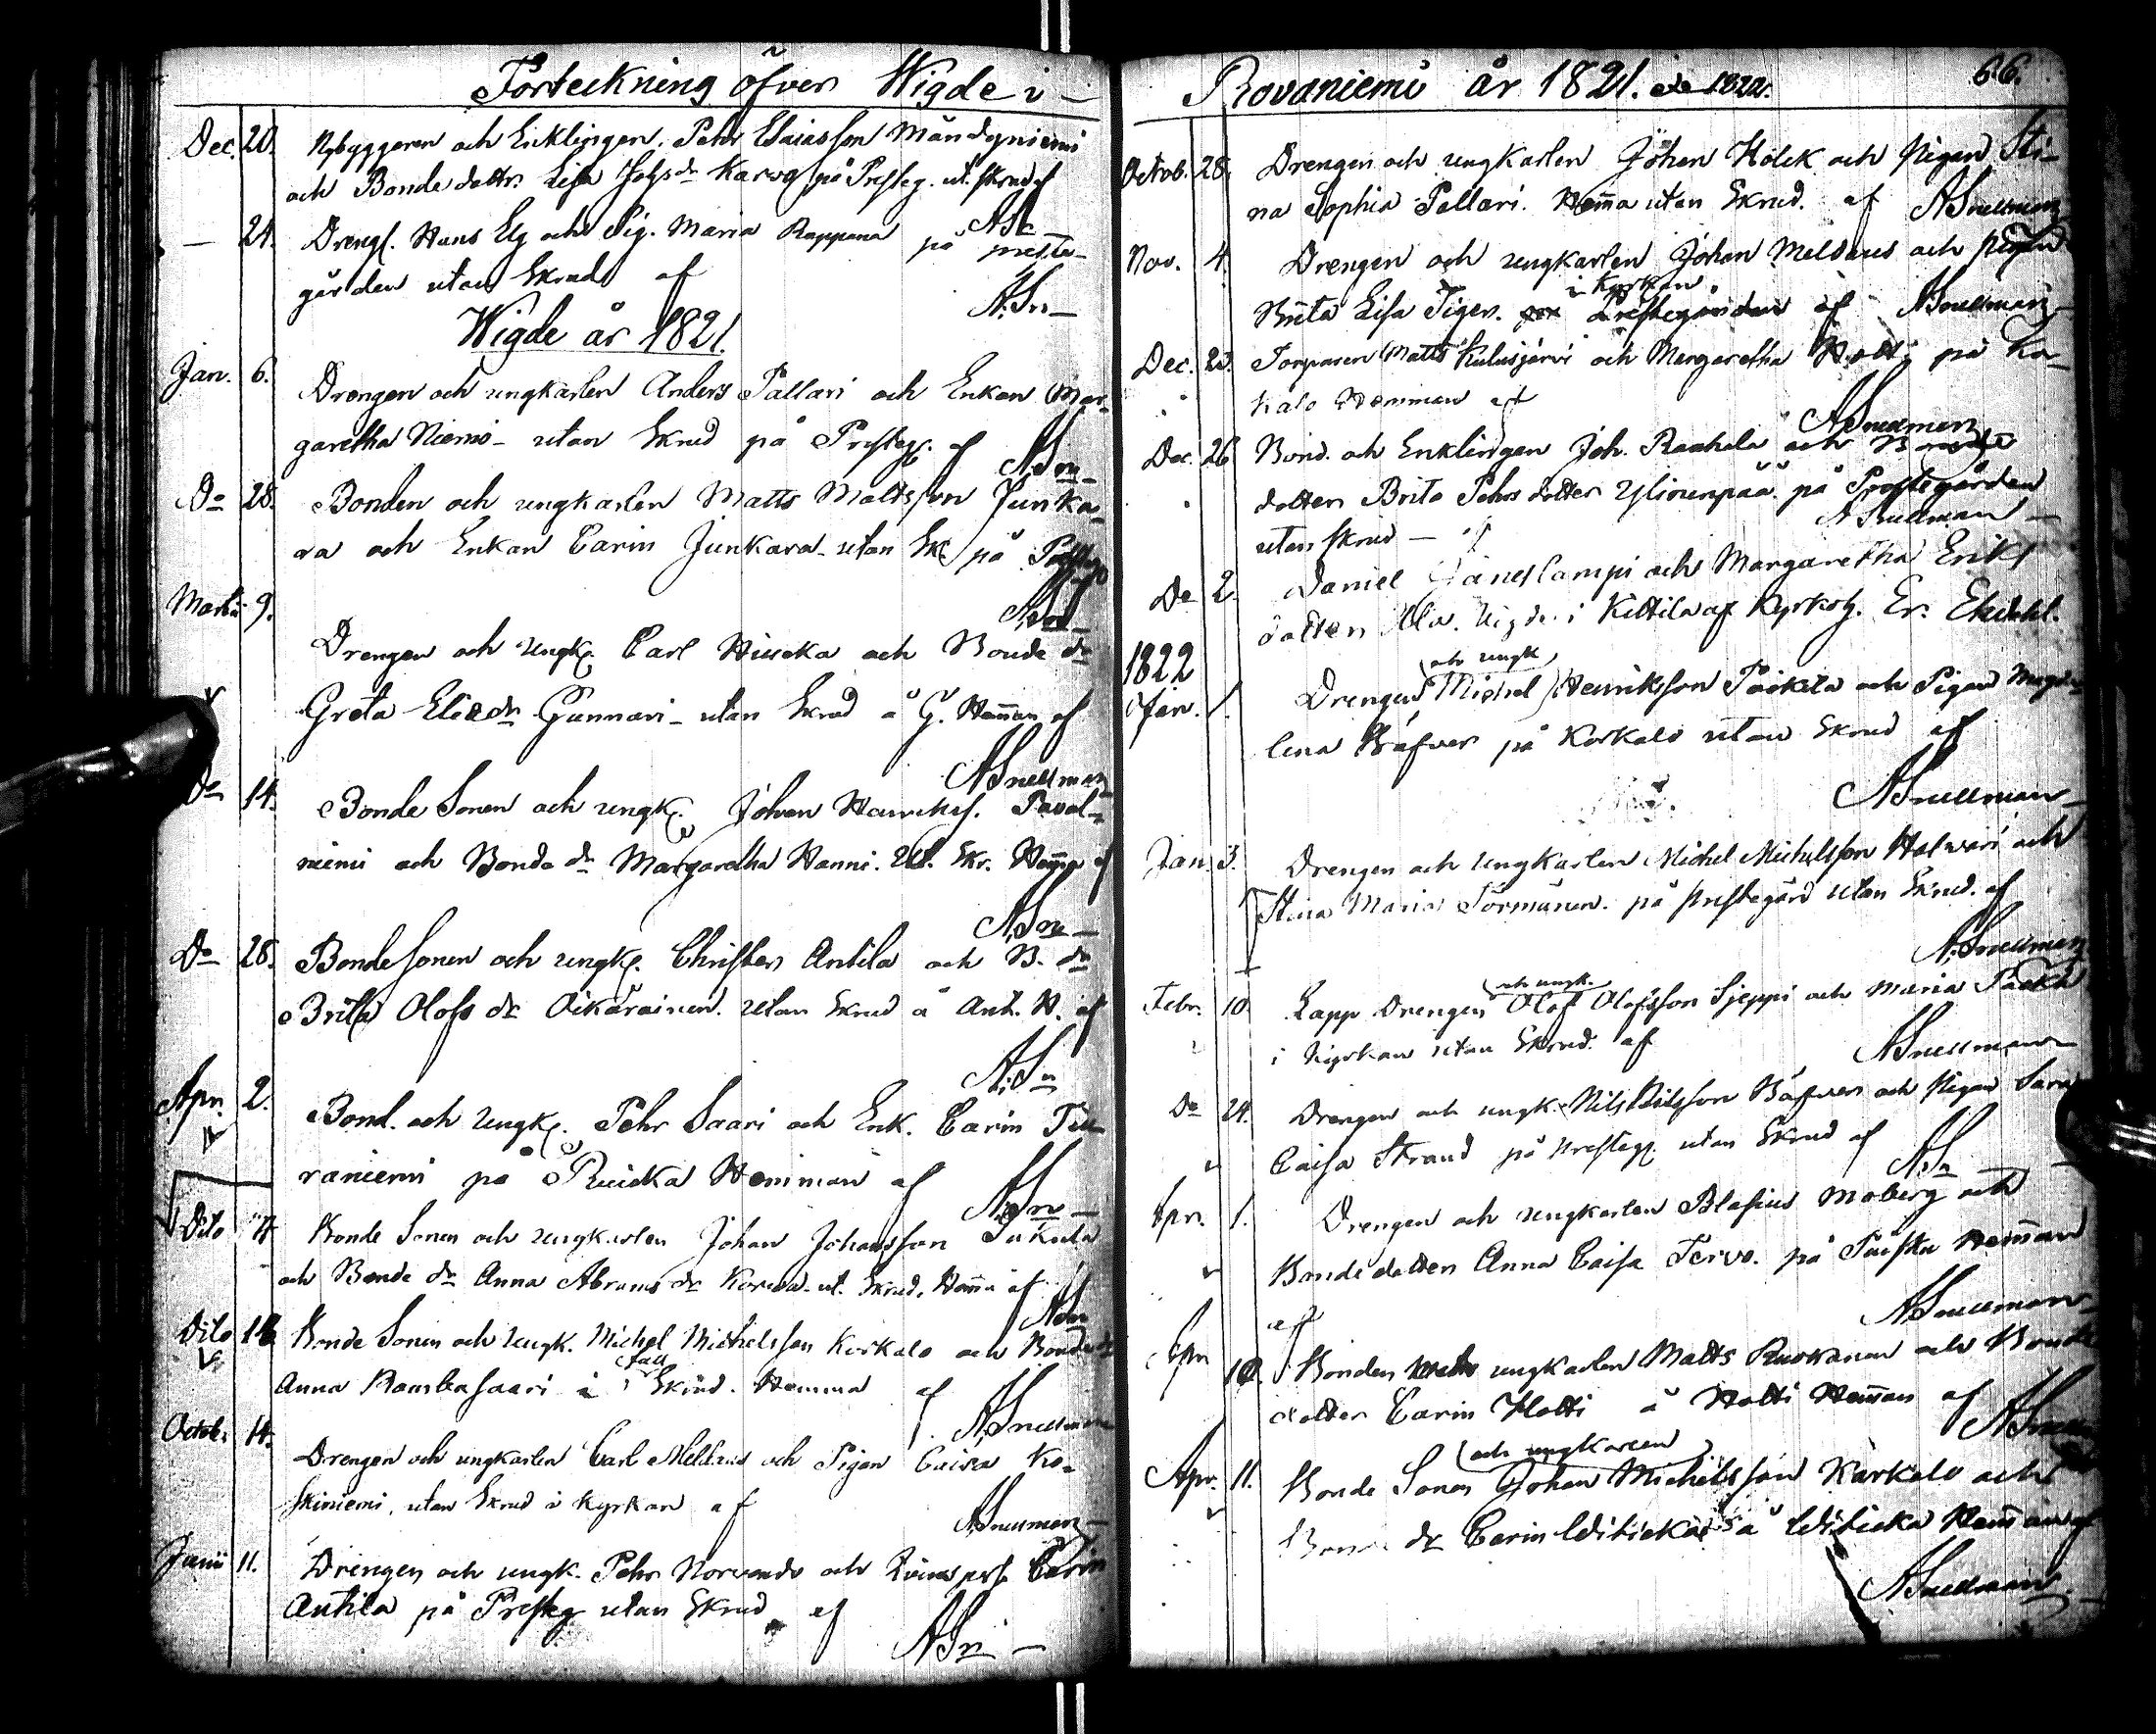 Förteckning öfver Wigde i
Dec. 20. Nybyggaren och Enklingen. Pehr Elaiasson
och Bonde dottr. Lisa Johsdr Karvo på Presteg. ut. skrud af
A.Sn
— 24. Drengs. Hans Elg och Pig. Maria Rappana på preste-
gården utan Skrud af
A.Sn —
Wigde år 1821.
Jan. 6. Drengen och ungkarlen Anders Pallari och Enkan Mar-
garetha Niemi - utan Skrud på Presteg. af A.Sn —
Do 28. Bonden och ungkarlen Matts Mattsson Junka-
ra och Enkan Carin Junkara - utan Sk. på
A.Sn —
Martii 9.
Drengen och ungk. Carl och Bonde dr
Greta Eliædr Gunnari - utan Skrud å G. Heman af
A Snellman
Do 14. Bonde Sonen och ungk. Johan Henrikss. Paval-
niemi och Bonde dr Margaretha Hanni. Ut. Skr. Hemma af
A.Sn —
Do 28. Bonde sonen och ungk. Christer Antila och B. dr
Brita Olofs dr Oikarainen. utan Skrud å Ant. H. af
A.Sn
Apr. 2. Bond. och Ungk. Pehr Saari och Enk. Carin
raniemi på Ruicka Hemman af A.Sn —
Dito Bonde Sonen och ungkarlen Johan Johansson
och Bonde dr Anna Abrams dr Korva - ut. Skrud. Hemma af
A.Sn
Dito Bonde Sonen och Ungk. Michel Michelsson Korkalo och Bonde dr
Anna Rambasaari i full Skrud. Hemma af
A. Snellman
Octob. 14. Drengen och ungkarlen Carl Meldaus och Pigan Caisa Ko-
skiniemi, utan Skrud i Kyrkan af
A. Snellman —
Junii 11. Drengen och ungk. Pehr Norvando och Qvinsperss. Carin
Antila på Presteg utan Skrud af
A.Sn —
Rovaniemi år 1821. och 1822. 66.
Octob. 28. Drengen och ungkarlen Johan Holck och Pigan Sti-
na Sophia Pallari. Hemma utan Skrud. af A Snellman
Nov. 4. Drengen och ungkarlen Johan Meldaus och Pigan
i Kyrkan
Brita Lisa Tiger. Prestegården af A Snellman —
Dec. 23. Torparen Matts Kulusjärvi och Margaretha på Ko-
kalo Hemman af
A Snellman
Dec. 26 Bond. och Enklingen Joh. Raahela och Bonde
dotten Brita Pehrs dotter Ylinenpää. på Prostegården
utan skrud — af A Snellman —
Do 2. Daniel Jäneslampi och Margaretha Eriks
dotter Wigde i Kittila af Kyrkoh. Er. Ekdahl.
1822
och ungk
Jan. 1. Drengen Michel Henriksson och Pigan Magda-
lena Bäfver på Korkalo utan Skrud af
A Snellman —
Jan. 3. Drengen och ungkarlen Michel Michelsson Halvari och
Stina Maria Törmänen. på Prestegård utan Skrud. af
A. Snellman
och ungk.
Febr. 10. Lapp Drengen Olof Olofsson Sjeppi och Maria
i Kyrkan utan Skrud. af A Snellman
Do 24. Drengen och ungk. Nils Nilsson Bäfver och Pigan Sara
Caisa Strand på Presteg. utan Skrud af A.Sn —
Apr. 1. Drengen och ungkarlen Blasius Moberg och
Bonde dotten Anna Caisa Tervo. på Hemman
af A Snellman
Apr 10. Bonden ungkarlen Matts Ruokanen och Bonde
dotter Carin Hotti å Hotti Heman af A Snellman
och ungkarlen
Apr. 11. Bonde Sonen Johan Michelsson Karkalo och
Bonde dr Carin Witicka å Witicka Heman af
A Snellman